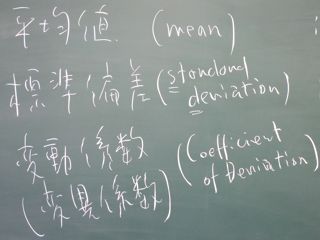 平均値 (mean)
標準偏差 (standard
deviation)
変動係数 (Coefficient
of Deviation)
(変異係数)